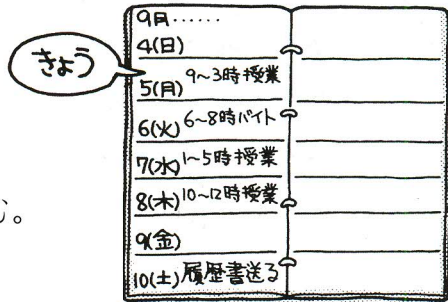 9月……
4(日)
きょう
5(月) 9~3時授業
6(火) 6~8時バイト
7(水) 1~5時授業
8(木) 10~12時授業
9(金)
10(土) 履歴書送る
。